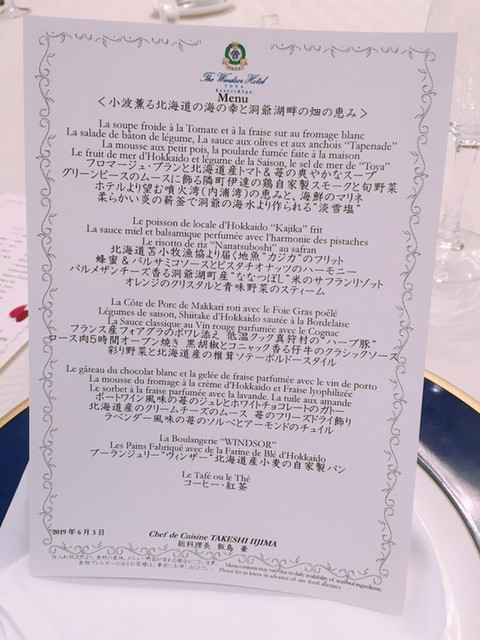 The Windsor Hotel
TOYA
Resort & Spa
Menu
＜小波薫る北海道の海の幸と洞爺湖畔の畑の恵み＞
La soupe froide à la Tomate et à la fraise sur au fromage blanc
La salade de bâton de légume, La sauce aux olives et aux anchois "Tapenade"
La mousse aux petit pois, la poularde fumée faite à la maison
Le fruit de mer d'Hokkaido et légume de la Saison, le sel de mer de "Toya"
フロマージュ・ブランと北海道産トマト&苺の爽やかなスープ
グリーンピースのムースに飾る隣町伊達の鶏自家製スモークと旬野菜
ホテルより望む噴火湾(内浦湾)の恵みと、海鮮のマリネ
柔らかい炎の薪釜で洞爺の海水より作られる"淡雪塩"
Le poisson de locale d'Hokkaido "Kajika" frit
La sauce miel et balsamique perfumée avec l'harmonie des pistaches
Le risotto de riz "Nanatsuboshi" au safran
北海道苫小牧漁協より届く地魚"カジカ"のフリット
蜂蜜&バルサミコソースとピスタチオナッツのハーモニー
パルメザンチーズ香る洞爺湖町産"ななつぼし"米のサフランリゾット
オレンジのクリスタルと青味野菜のスティーム
La Côte de Porc de Makkari roti avec le Foie Gras poêlé
Légumes de saison, Shiitake d'Hokkaido sautée à la Bordelaise
La Sauce classique au Vin rouge parfumée avec le Cognac
フランス産フォアグラのポワレ添え 低温クック真狩村の"ハーブ豚"
ロース肉5時間オーブン焼き 黒胡椒とコニャック香る仔牛のクラシックソース
彩り野菜と北海道産の椎茸ソテーボルドースタイル
Le gâteau du chocolat blanc et la gelée de fraise parfumée avec le vin de porto
La mousse du fromage à la crème d'Hokkaido et Fraise lyophilizée
Le sorbet à la fraise parfumée avec la lavande. La tuile aux amande
ポートワイン風味の苺のジュレとホワイトチョコレートのガトー
北海道産のクリームチーズのムース 苺のフリーズドライ飾り
ラベンダー風味の苺のソルベとアーモンドのチュイル
La Boulangerie "WINDSOR"
Les Pains Fabriqué avec de la Farine de Blé d'Hokkaido
ブーランジュリー"ウィンザー"北海道産小麦の自家製パン
Le Tafé ou le Thé
コーヒー・紅茶
2019年6月3日
Chef de Cuisine TAKESHI IIJIMA
総料理長 飯島 豪
Menu contents may vary due to daily availability of seasonal ingredients.
Please let us know in advance of any food allergies.